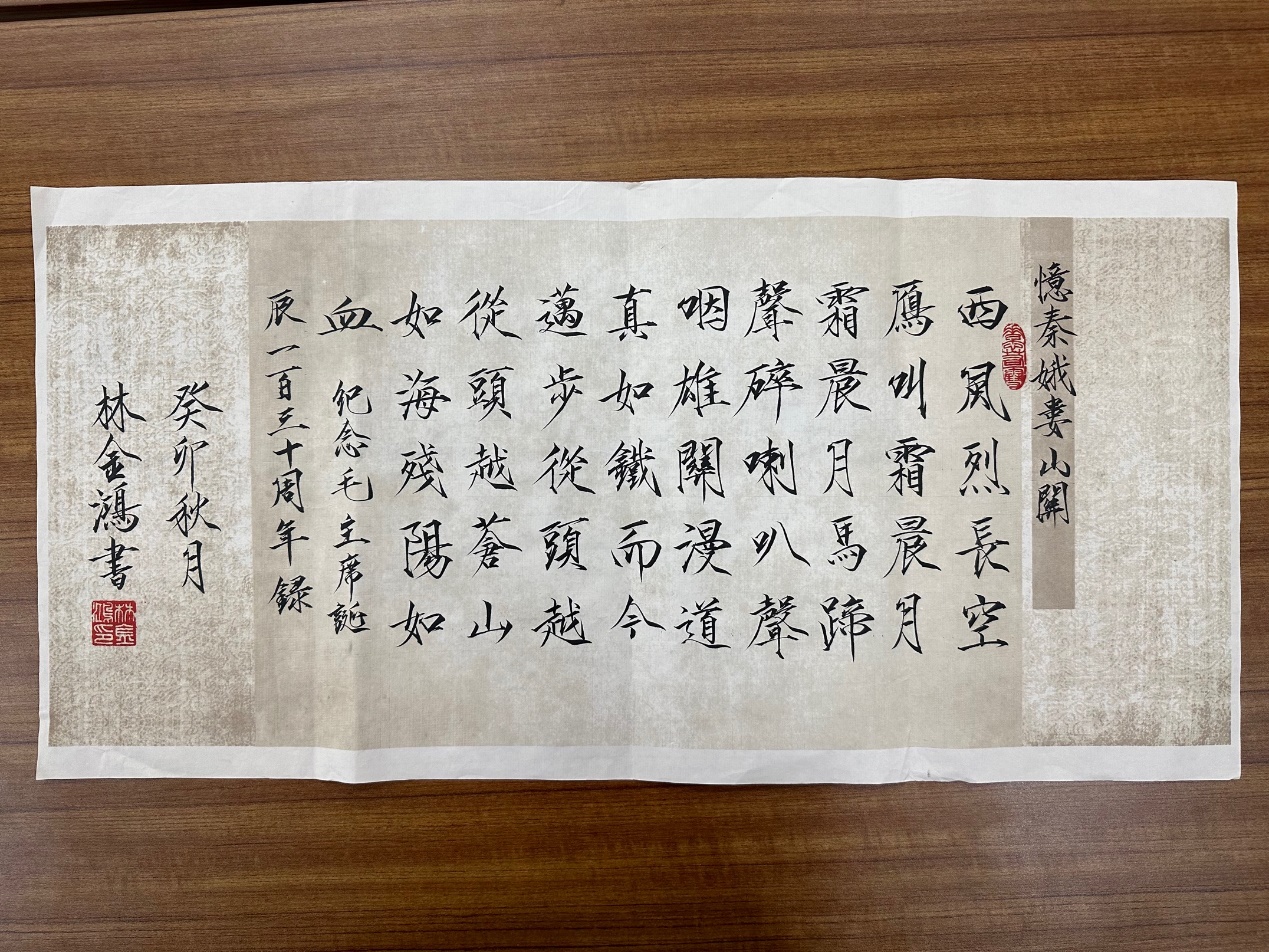 憶秦娥婁山關
西風烈長空
鴈叫霜晨月
霜晨月馬蹄
聲碎喇叭聲
咽雄關漫道
真如鐵而今
邁步從頭越
從頭越蒼山
如海殘陽如
血
纪念毛主席誕
辰一百三十周年録
癸卯秋月
林金鴻書
林金鴻印